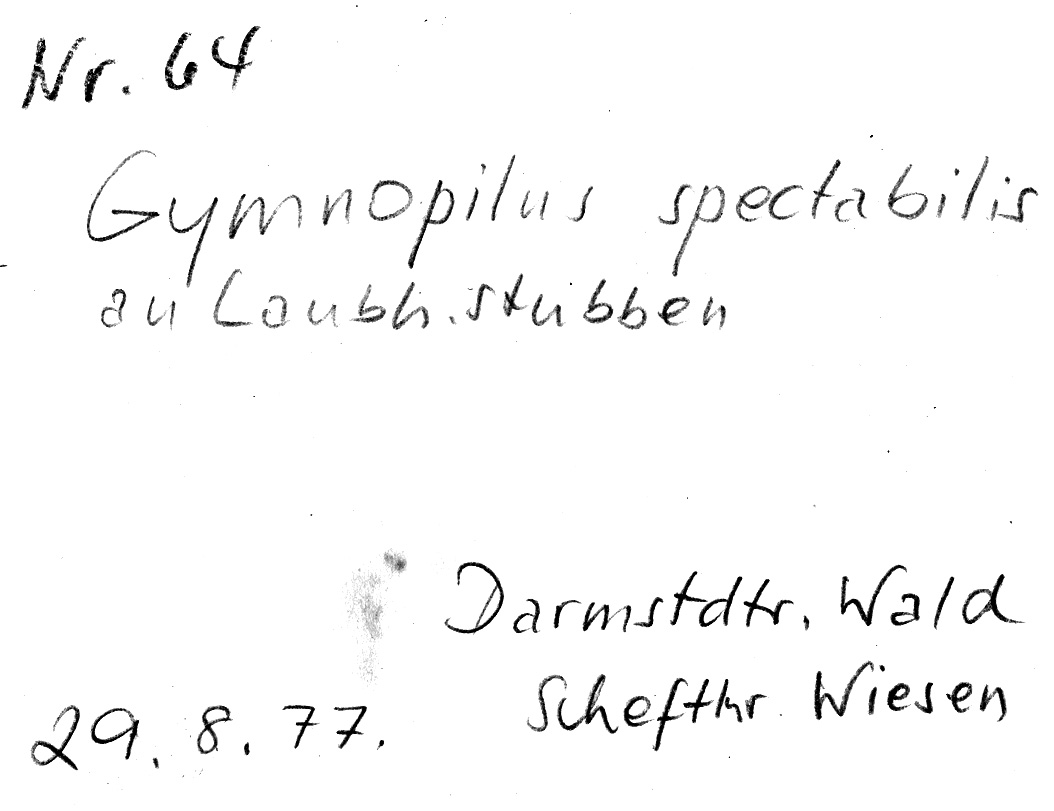 Nr. 64
Gymnopilus spectabilis
an Laubh.stubben
Darmstdtr. Wald
Schefthr Wiesen
29. 8. 77.